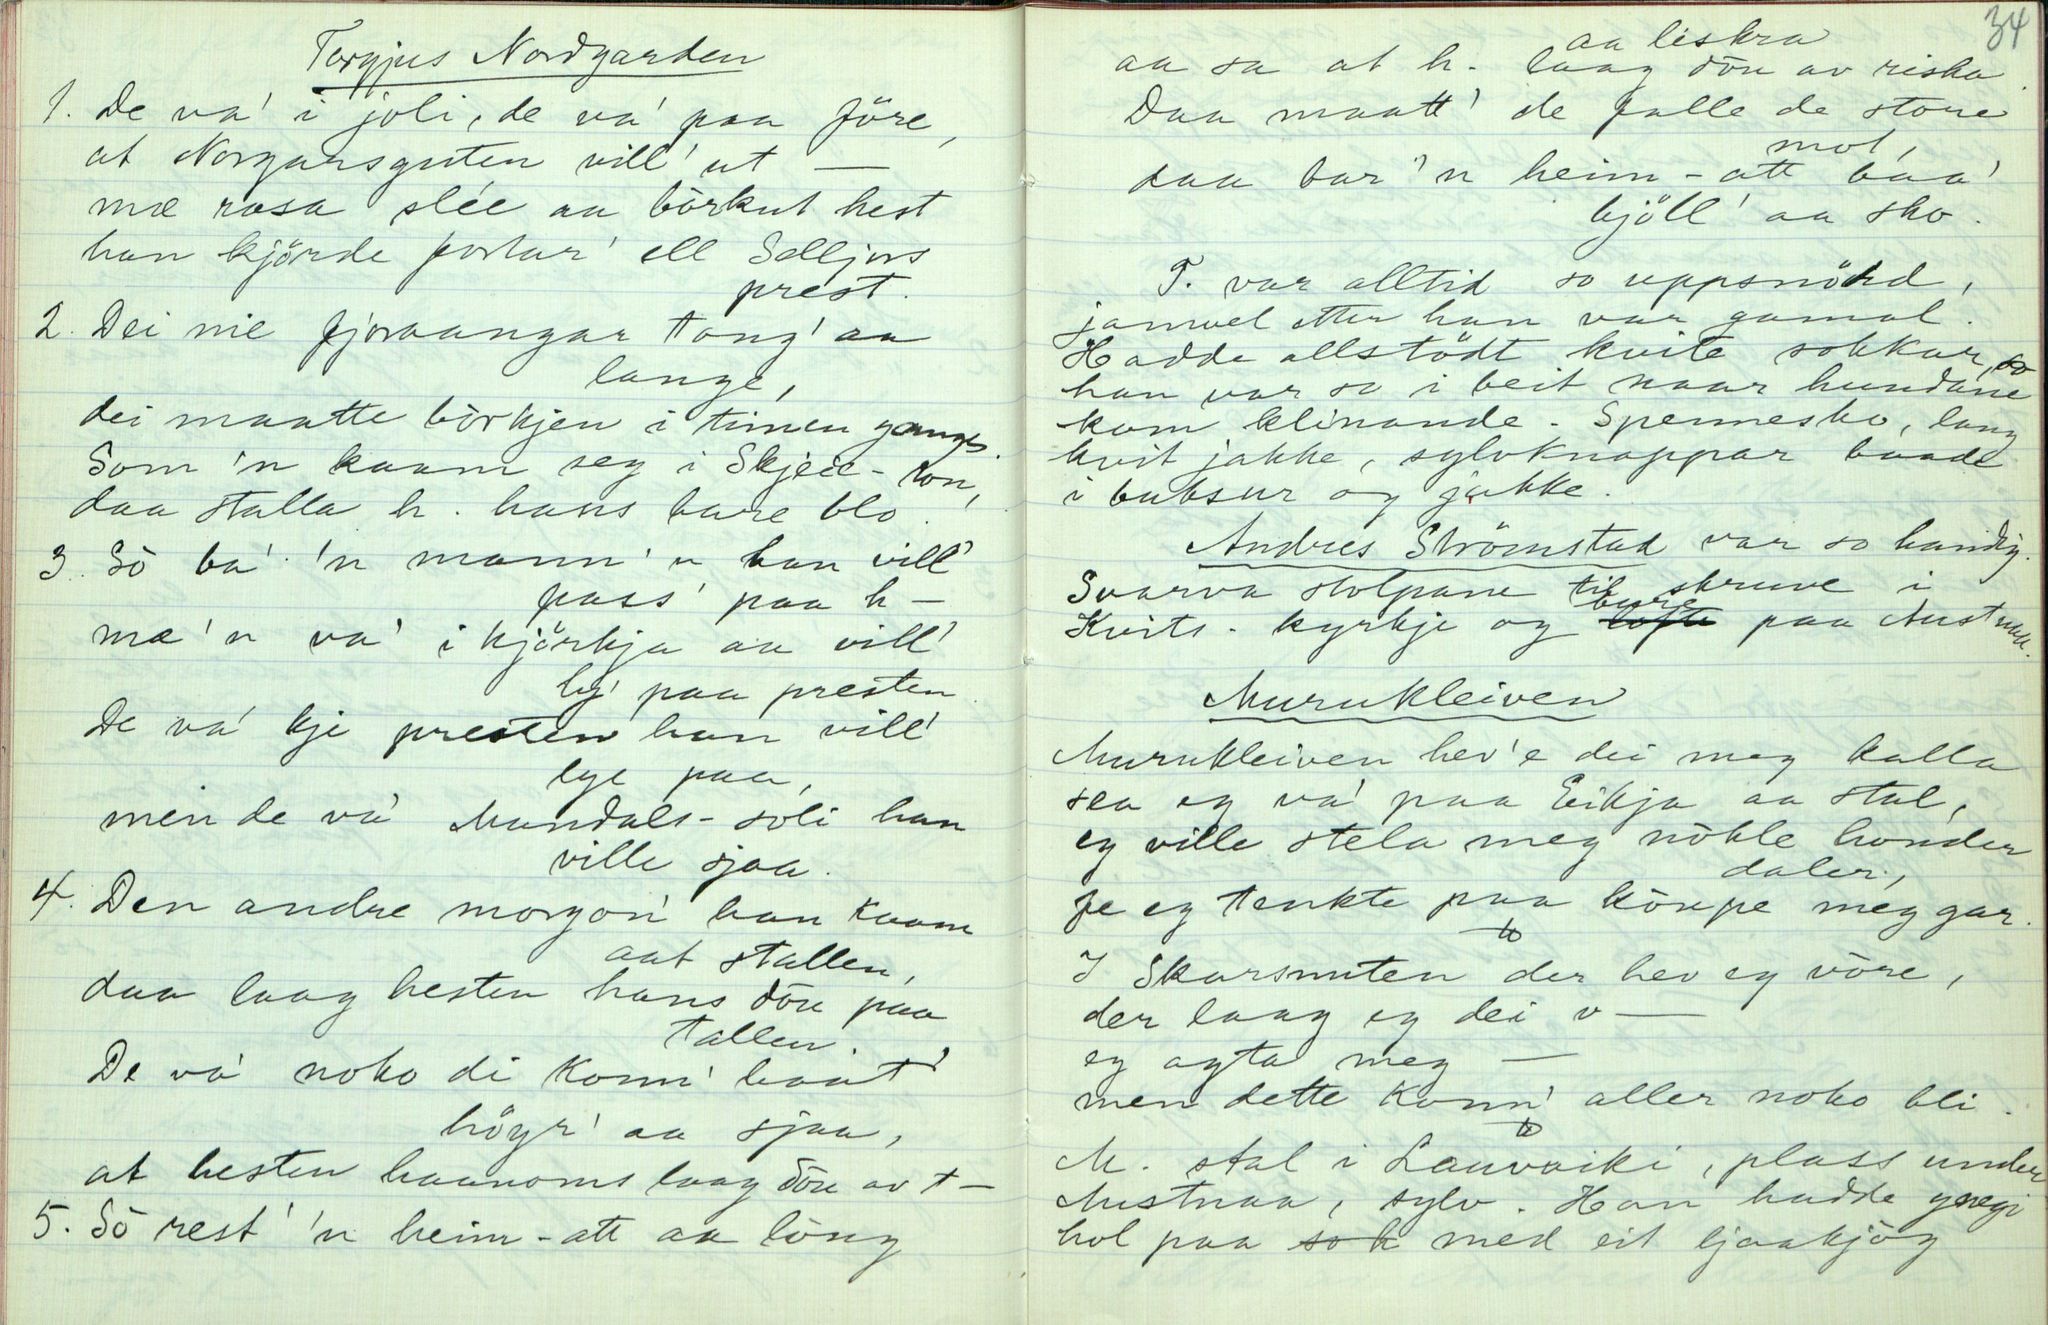 Torgjus Nordgarden
1. De va' i joli, de va' paa före,
at Norgarsguten vill' ut —
mæ rosa slée aa börkut hest
han kjörde postar' ell Selljors
prest.
2. Dei nie fjoraangar tong' aa
lange,
dei maatte börkjen i timen gange.
Som 'n kaam seg i Skjeie-ron,
daa stalla h. hans bare blo.
3. Sò ba' 'n mann'n han vill'
pass' paa h —
mæ 'n va' i kjörkja aa vill'
ly' paa presten
De va' kje presten han vill'
lye paa,
mein de va' Mandals-soli han
ville sjaa.
4. Den andre morgon' han kaam
aat stallen,
daa laag hesten hans döu paa
tallen.
De va' noko di konn' baat'
högr' aa sjaa,
at hesten haanoms laag döu av t —
5. Sò rest' 'n heim-att aa löug
34
aa sa at h. laag döu av riska
aa liskra
Daa maatt' de falle de store
mot,
daa bar 'n heim-att baa'
bjöll' aa sko.
T. var alltid so uppsnödd,
jamvel etter han var gamal.
Hadde allstödt kvite sokkar, so
han var so i beit naar hundane
kom klinande. Spennesko, lang
kvit jakke, sylvknappar baade
i buksur og jakke.
Andres Strömstad var so handig.
Svarva stolpane til skruve i
Kvits. kyrkje og lofte bure paa Austnaa.
Murukleiven
Murukleiven hev'e dei meg kalla
sea eg va' paa Eikja aa stal,
eg ville stela meg nòkle honder
daler,
fe eg tenkte paa köupe meg gar.
I Skarsnuten der hev eg vöre,
der laag eg dei v —
eg agta meg —
men dette konn' aller noko bli.
M. stal i Lauvviki, plass under
Austnaa, sylv. Han hadde gregi
hol paa so h med eit ljaakjög